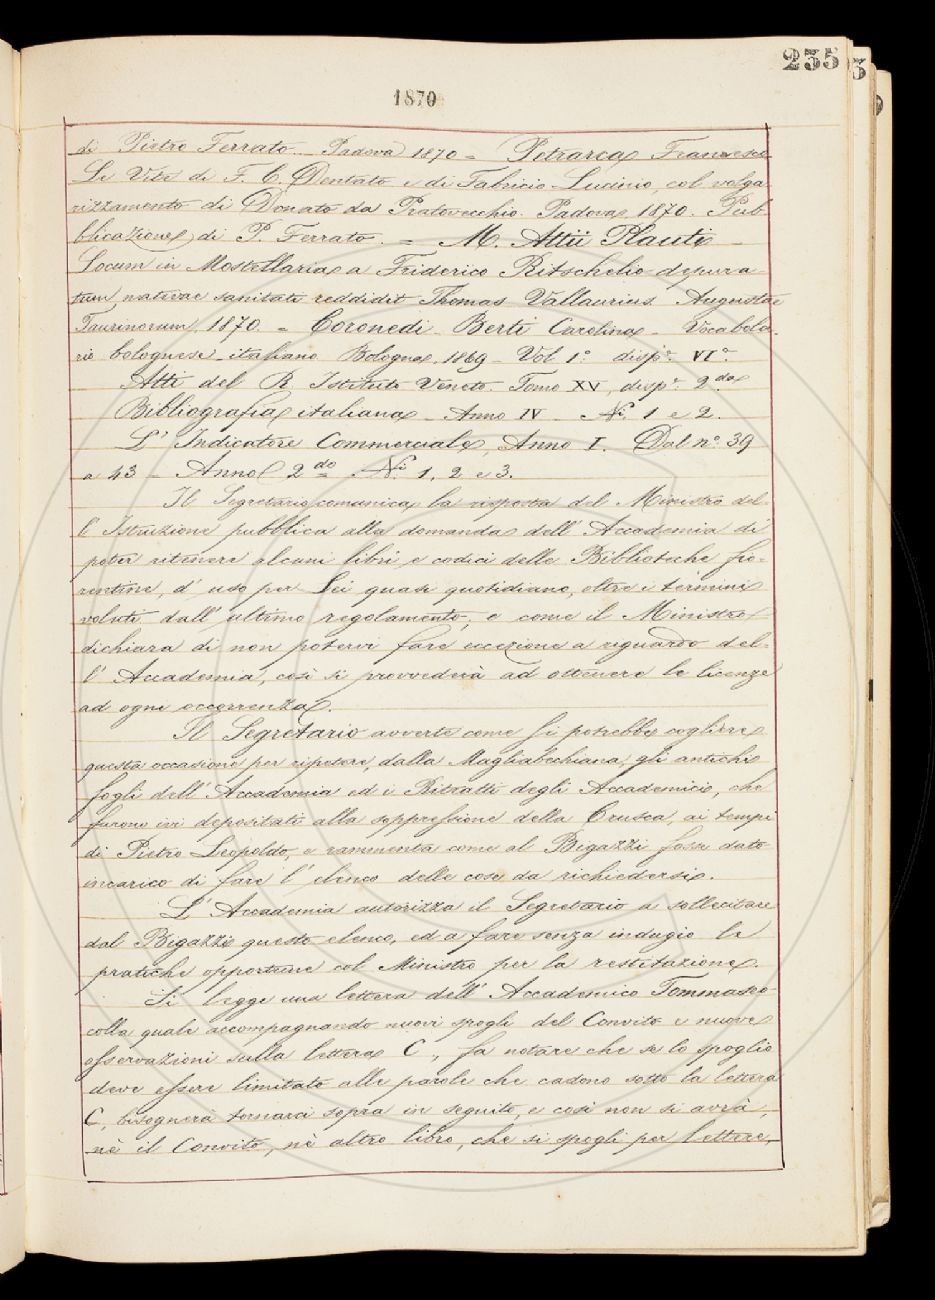 235
1870
di Pietro Ferrato. Padova 1870 = Petrarca Francesco
Le Vite di F. C. Dentato e di Fabricio Lucinio, col volga-
rizzamento di Donato da Pratovecchio. Padova, 1870. Pub-
blicazione di P. Ferrato. = M. Attii Plauti
Locum in Mostellaria a Friderico Ritschelio depura-
tum nativae sanitati reddidit Thomas Vallaurius. Augustae
Taurinorum, 1870. = Coronedi Berti Carolina - Vocabola-
rio bolognese italiano Bologna, 1869 - Vol 1.° disp.e VI.a
Atti del R. Istituto Veneto. Tomo XV, disp.e 2.da
Bibliografia italiana - Anno IV - Ni. 1 e 2.
L' Indicatore Commerciale, Anno I. Dal n.° 39
a 43 - Anno 2.do Ni. 1, 2 e 3.
Il Segretario comunica la risposta del Ministro del-
l' Istruzione pubblica alla domanda dell' Accademia di
poter ritenere alcuni libri e codici delle Biblioteche fio-
rentine, d' uso per Lei quasi quotidiano, oltre i termini
voluti dall' ultimo regolamento; e come il Ministro
dichiara di non potervi fare eccezione a riguardo del-
l' Accademia, così si provvederà ad ottenere le licenze
ad ogni occorrenza.
Il Segretario avverte come si potrebbe cogliere
questa occasione per ripetere, dalla Magliabechiana, gli antichi
fogli dell' Accademia ed i Ritratti degli Accademici, che
furono ivi depositati alla soppressione della Crusca, ai tempi
di Pietro Leopoldo, e rammenta come al Bigazzi fosse dato
incarico di fare l' elenco delle cose da richiedersi.
L' Accademia autorizza il Segretario a sollecitare
dal Bigazzi questo elenco, ed a fare senza indugio le
pratiche opportune col Ministro per la restituzione.
Si legge una lettera dell' Accademico Tommaseo
colla quale accompagnando nuovi spogli del Convito e nuove
osservazioni sulla lettera C., fa notare che se lo spoglio
deve essere limitato alle parole che cadono sotto la lettera
C, bisognerà tornarci sopra in seguito, e così non si avrà,
nè il Convito, nè altro libro, che si spogli per lettere,